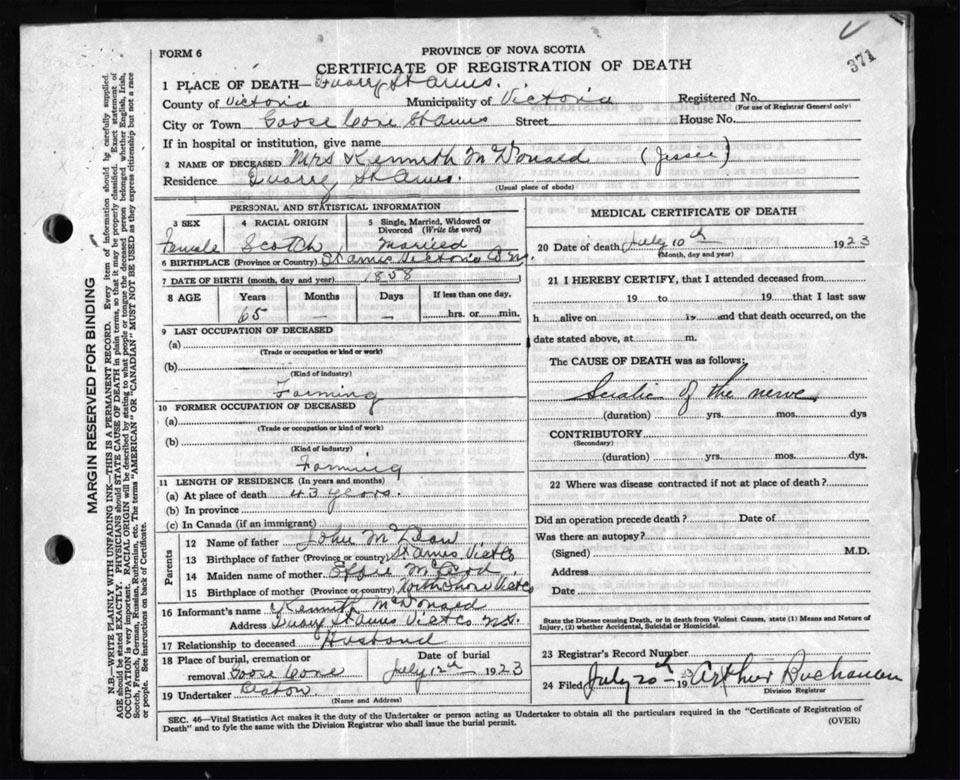 371
FORM 6
PROVINCE OF NOVA SCOTIA
CERTIFICATE OF REGISTRATION OF DEATH
1 PLACE OF DEATH— Quarry St Anns.
County of Victoria Municipality of Victoria Registered No.
(For use of Registrar General only)
City or Town Goose Cove St Anns Street House No.
If in hospital or institution, give name
2 NAME OF DECEASED Mrs Kenneth McDonald (Jessie)
Residence Quarry St Anns.
(Usual place of abode)
PERSONAL AND STATISTICAL INFORMATION
3 SEX 4 RACIAL ORIGIN 5 Single, Married, Widowed or Divorced (Write the word)
Female Scotch Married
6 BIRTHPLACE (Province or Country) St Anns Victoria
7 DATE OF BIRTH (month, day and year) 1858
8 AGE Years Months Days If less than one day,
65 — — hrs. or min.
9 LAST OCCUPATION OF DECEASED
(a)
(Trade or occupation or kind or work)
(b)
(Kind of industry)
Farming
10 FORMER OCCUPATION OF DECEASED
(a)
(Trade or occupation or kind of work)
(b)
(Kind of industry)
Farming
11 LENGTH OF RESIDENCE (In years and months)
(a) At place of death 43 years.
(b) In province
(c) In Canada (if an immigrant)
Parents
12 Name of father John
13 Birthplace of father (Province or country) St Anns Vict Co
14 Maiden name of mother Effie McLeod
15 Birthplace of mother (Province or country) North Shore Vict Co
16 Informant's name Kenneth McDonald
Address Quarry St Anns Vict Co N.S.
17 Relationship to deceased Husband
18 Place of burial, cremation or removal Goose Cove Date of burial July 12th 1923
19 Undertaker
(Name and Address)
MEDICAL CERTIFICATE OF DEATH
20 Date of death July 10th 1923
(Month, day and year)
21 I HEREBY CERTIFY, that I attended deceased from
19 to 19 that I last saw
h alive on 19 and that death occurred, on the
date stated above, at m.
The CAUSE OF DEATH was as follows:
Sciatic of the nerve
(duration) yrs. mos. dys
CONTRIBUTORY
(Secondary)
(duration) yrs. mos. dys.
22 Where was disease contracted if not at place of death?
Did an operation precede death? Date of
Was there an autopsy?
(Signed) M.D.
Address
Date
State the Disease causing Death, or in death from Violent Causes, state (1) Means and Nature of
Injury, (2) whether Accidental, Suicidal or Homicidal.
23 Registrar's Record Number
24 Filed July 20th 19 Arthur Buchanan
Division Registrar
SEC. 46—Vital Statistics Act makes it the duty of the Undertaker or person acting as Undertaker to obtain all the particulars required in the "Certificate of Registration of
Death" and to fyle the same with the Division Registrar who shall issue the burial permit.
(OVER)
MARGIN RESERVED FOR BINDING
N.B.—WRITE PLAINLY WITH UNFADING INK—THIS IS A PERMANENT RECORD. Every item of information should be carefully supplied.
AGE should be stated EXACTLY. PHYSICIANS should STATE CAUSE OF DEATH in plain terms, so that it may be properly classified. Exact statement of
OCCUPATION is very important. RACIAL ORIGIN will be described by stating to what people or tongue the deceased person belonged whether English, Irish,
Scotch, French, German, Russian, Ruthenian, etc. The terms "AMERICAN" OR "CANADIAN" MUST NOT BE USED as they express citizenship but not a race
or people. See instructions on back of Certificate.